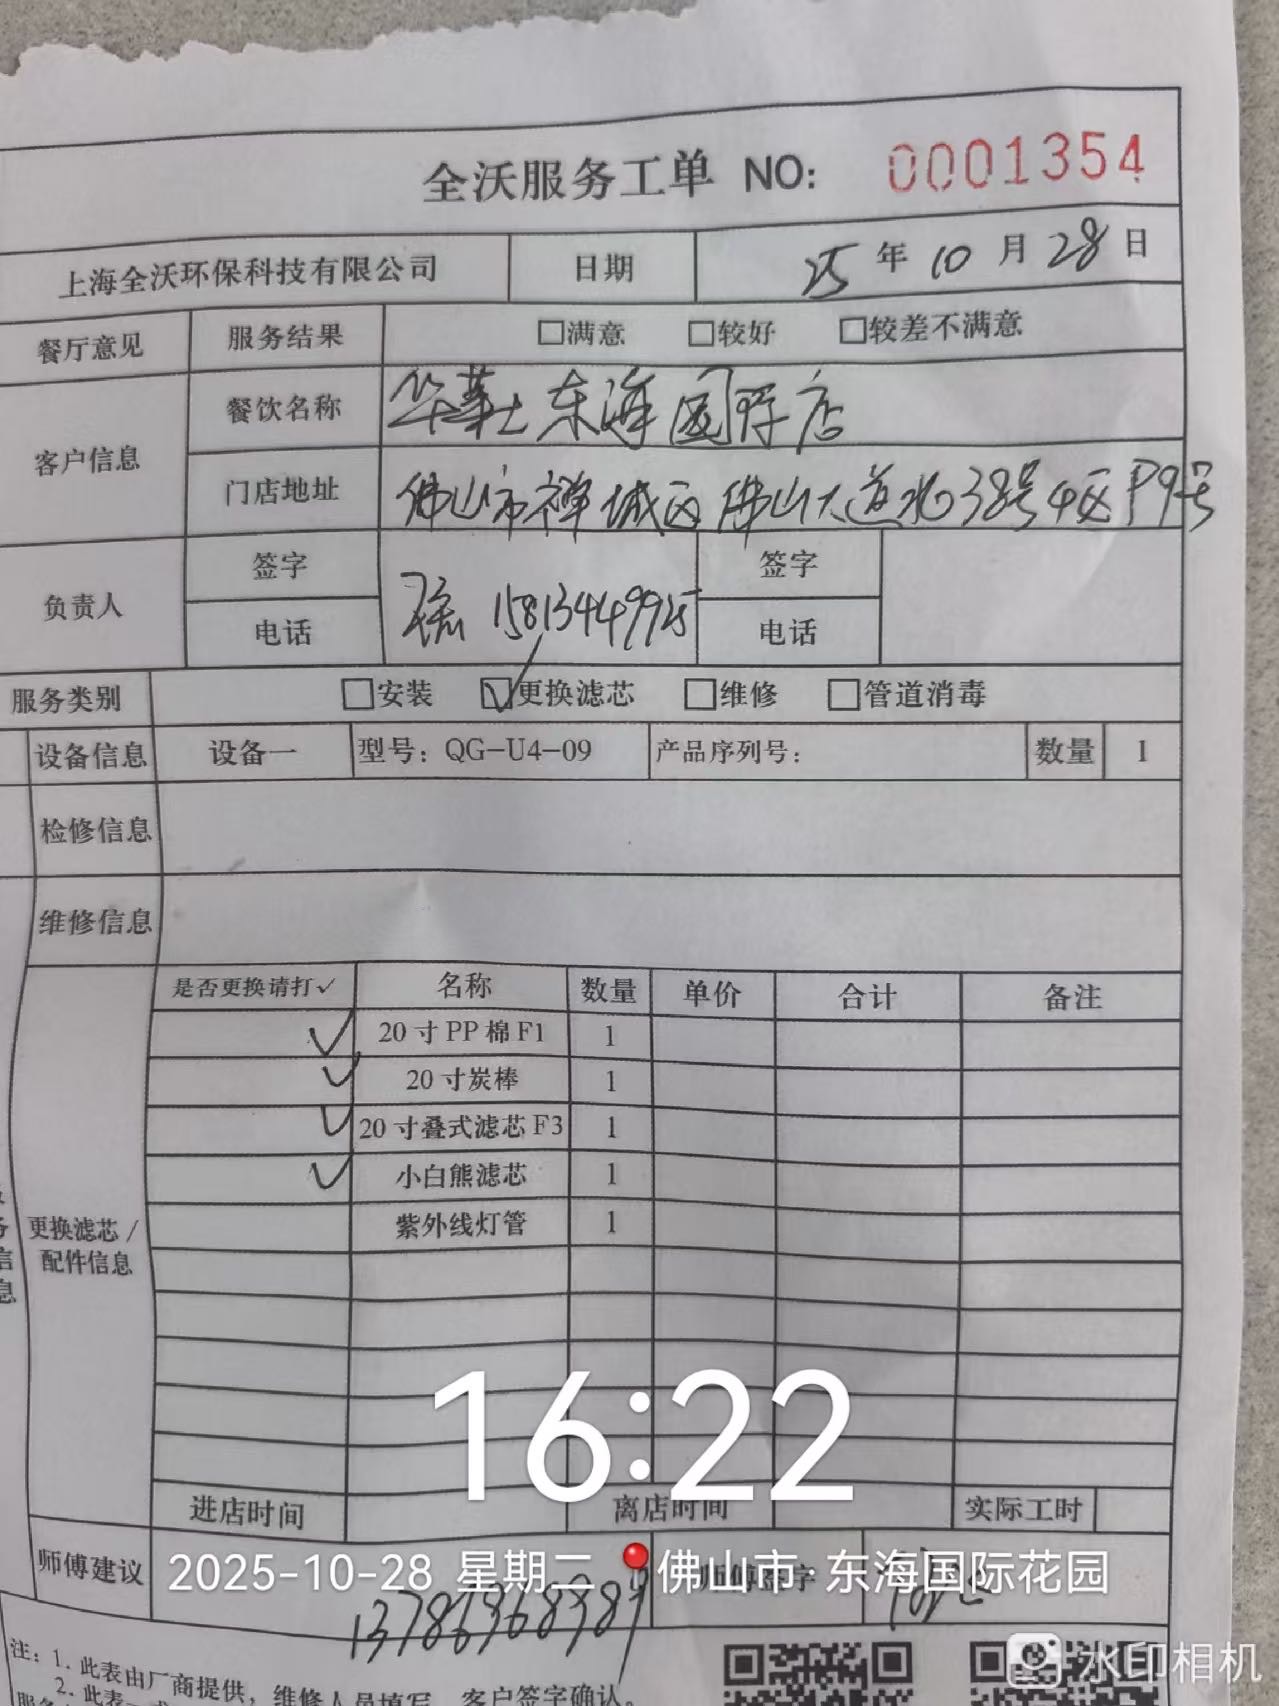 全沃服务工单 NO: 0001354
上海全沃环保科技有限公司 日期 25 年 10 月 28 日
餐厅意见 服务结果 □满意 □较好 □较差不满意
客户信息 餐饮名称 华莱士东海国际店
门店地址 佛山市禅城区佛山大道北38号4区P9号
负责人 签字 签字
电话 15813449925 电话
服务类别 □安装 ☑更换滤芯 □维修 □管道消毒
设备信息 设备一 型号：QG-U4-09 产品序列号： 数量 1
检修信息
维修信息
是否更换请打✓ 名称 数量 单价 合计 备注
✓ 20寸PP棉F1 1
✓ 20寸炭棒 1
✓ 20寸叠式滤芯F3 1
✓ 小白熊滤芯 1
紫外线灯管 1
更换滤芯/
配件信息
务
信
息
16:22
进店时间 离店时间 实际工时
师傅建议 师傅签字
2025-10-28 星期二 佛山市·东海国际花园
13786968989
注：1. 此表由厂商提供，维修人员填写，客户签字确认。
2. 此表一
水印相机